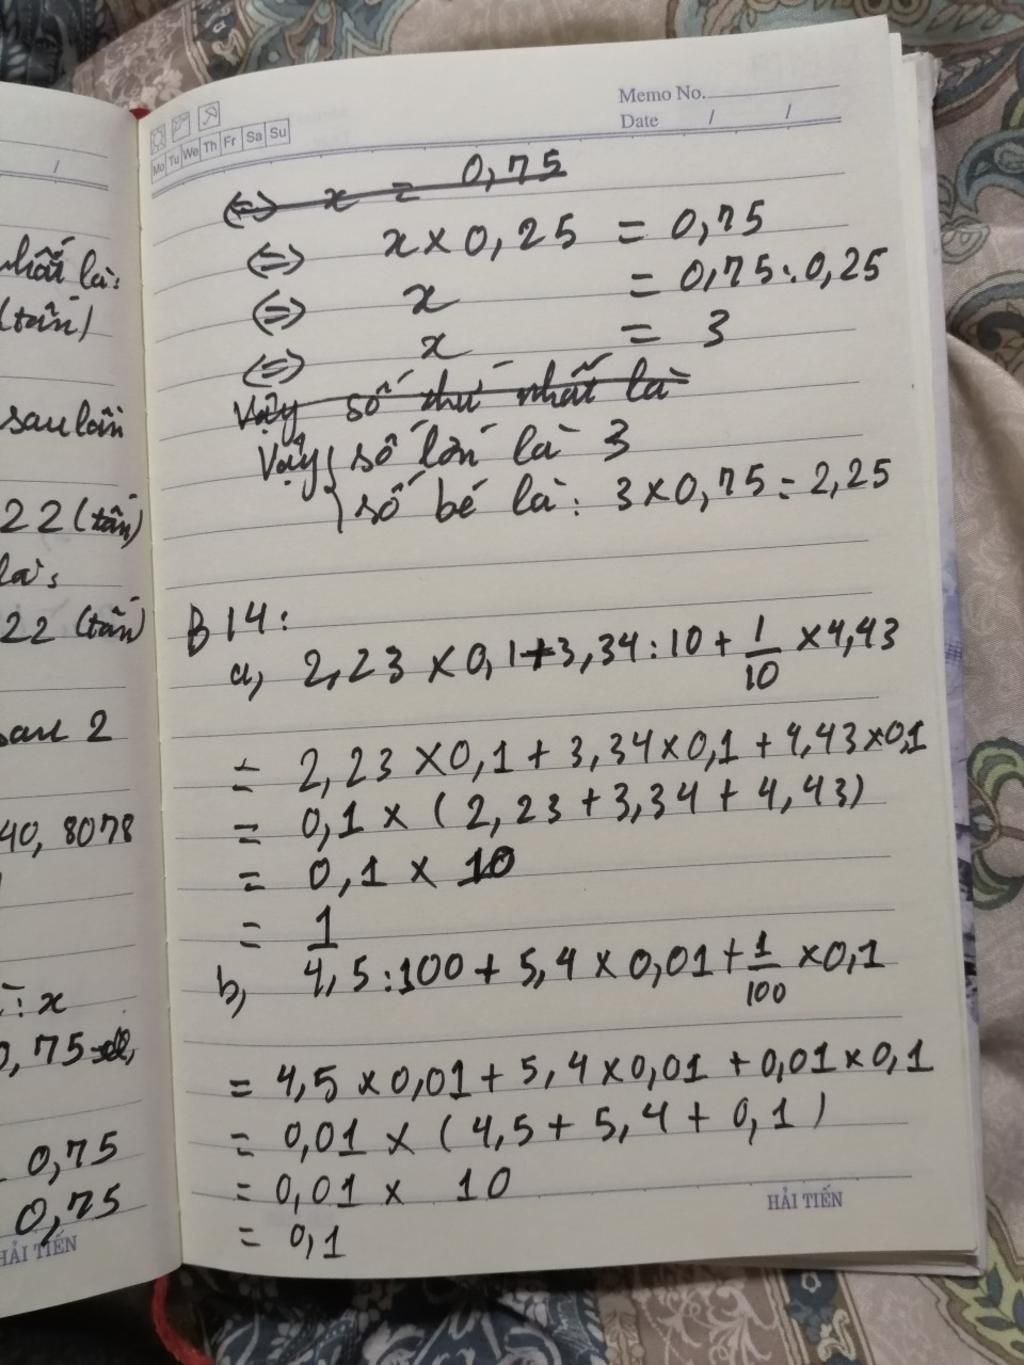 /
nhất là:
(tấn)
sau lần
22 (tấn)
là:
22 (tấn)
sau 2
40,8078
: x
0,75
0,75
0,75
HẢI TIẾN
Memo No.
Date / /
Mo Tu We Th Fr Sa Su
(=) x = 0,75
(=) x × 0,25 = 0,75
(=) x = 0,75 : 0,25
(=) x = 3
Vậy số thứ nhất là
Vậy { số lớn là 3
số bé là: 3 × 0,75 = 2,25
B 14:
a, 2,23 × 0,1 + 3,34 : 10 + 1/10 × 4,43
= 2,23 × 0,1 + 3,34 × 0,1 + 4,43 × 0,1
= 0,1 × (2,23 + 3,34 + 4,43)
= 0,1 × 10
= 1
b, 4,5 : 100 + 5,4 × 0,01 + 1/100 × 0,1
= 4,5 × 0,01 + 5,4 × 0,01 + 0,01 × 0,1
= 0,01 × (4,5 + 5,4 + 0,1)
= 0,01 × 10
= 0,1
HẢI TIẾN